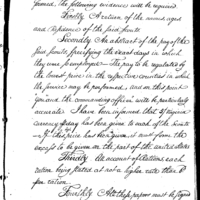 formed, the following evidence will be required
Firstly A return of the names, ages
and residence of the said Scouts
Secondly An abstract of the pay of the
said Scouts, specifying the exact days in which
they were so employed. The pay to be regulated by
the lowest price in the respective counties in which
the service may be performed, and on this point
you and the commanding officer will be particularly
accurate. I have been informed that
currency pr day has been given to each of the Scouts
if this price has been given, it must form the
excess to be given on the part of the united states
Thirdly An account of Rations each
ration being stated at not a higher rate than
pr ration.
Fourthly All these papers must be signed